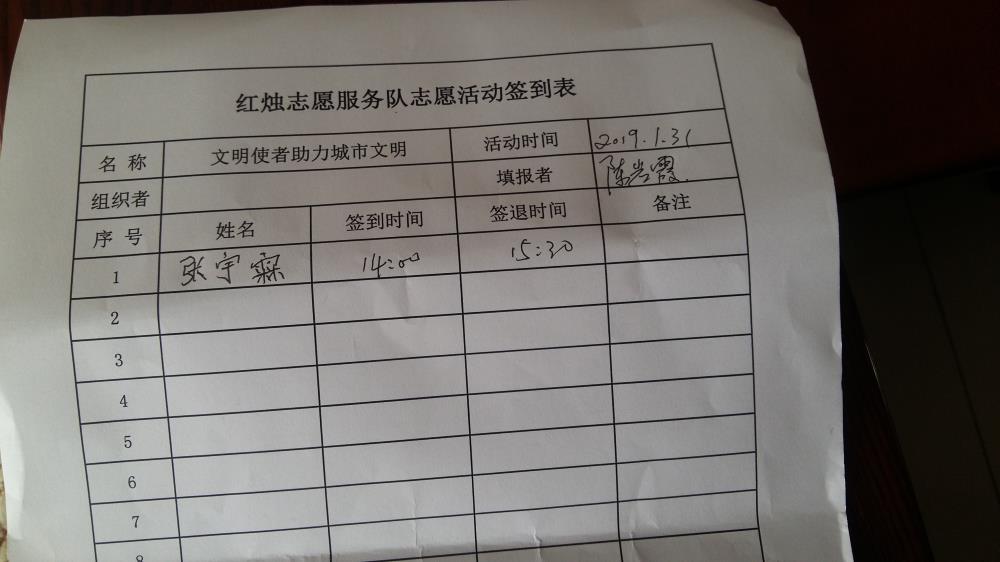 红烛志愿服务队志愿活动签到表
名 称 文明使者助力城市文明 活动时间 2019.1.31
组织者 填报者 陈岩霞
序 号 姓名 签到时间 签退时间 备注
1 张宇霖 14:00 15:30
2
3
4
5
6
7
8